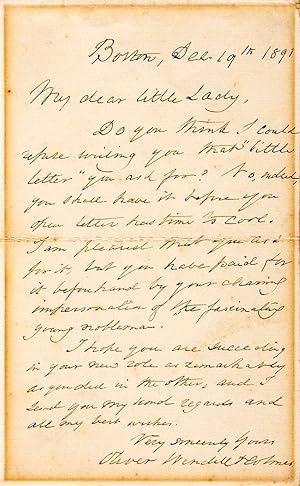 Boston, Dec. 19th 1891
My dear little Lady,
Do you think I could
refuse writing you that "little
letter" you ask for? No, indeed
you shall have it before your
letter has time to cool.
I am pleased that you ask
for it, but you have paid for
it beforehand by your charming
impersonation of the fascinating
young nobleman.
I hope you are succeeding
in your new role as remarkably
as you did in the other, and I
send you my kind regards and
all my best wishes.
Very sincerely yours
Oliver Wendell Holmes